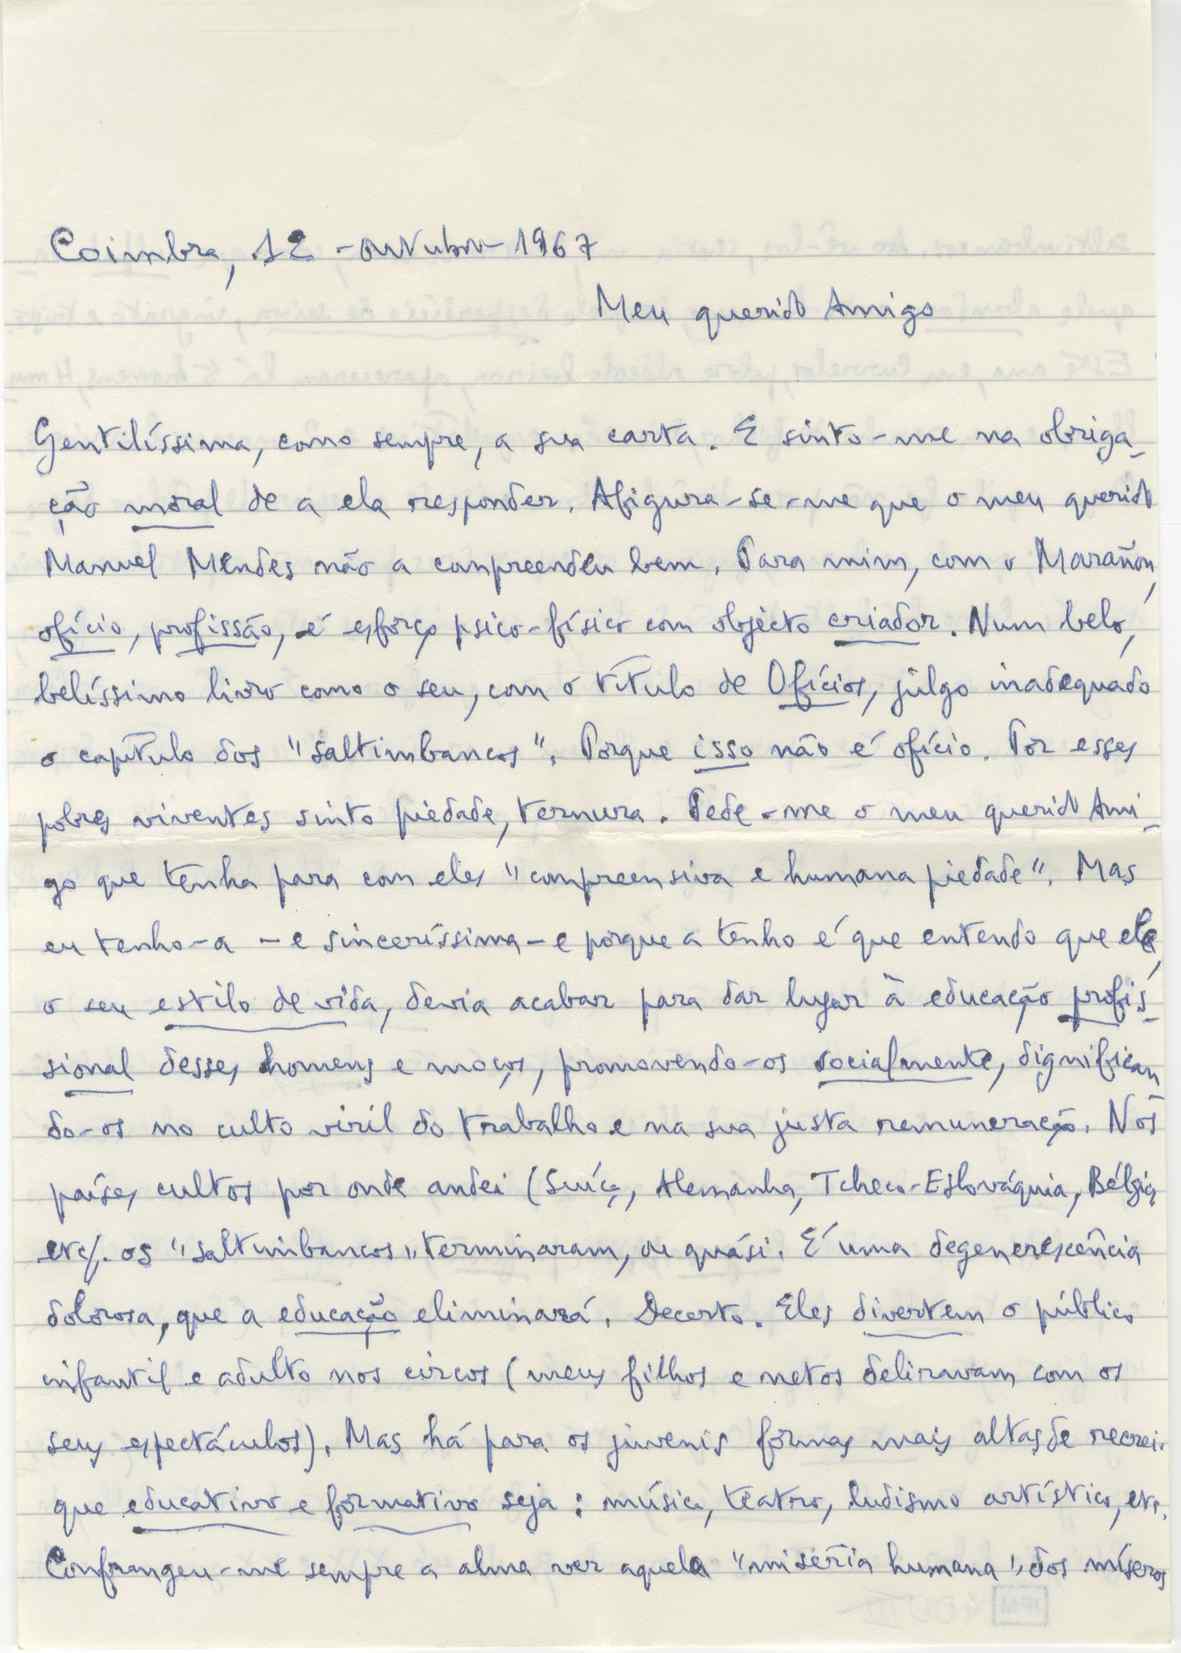 Coimbra, 12 - outubro - 1967
Meu querido Amigo
Gentilíssima, como sempre, a sua carta. E sinto-me na obriga-
ção moral de a ela responder. Afigura-se-me que o meu querido
Manuel Mendes não a compreendeu bem. Para mim, com o Marañon,
ofício, profissão, é esforço psico-físico com objécto criador. Num belo,
belíssimo livro como o seu, com o título de Ofícios, julgo inadequado
o capítulo dos "saltimbancos". Porque isso não é ofício. Por esses
pobres viventes sinto piedade, ternura. Pede-me o meu querido Ami-
go que tenha para com eles "compreensiva e humana piedade". Mas
eu tenho-a - e sinceríssima - e porque a tenho é que entendo que ele,
o seu estilo de vida, devia acabar para dar lugar à educação profis-
sional desses homens e moços, promovendo-os socialmente, dignifican
do-os no culto viril do trabalho e na sua justa remuneração. Nos
países cultos por onde andei (Suíça, Alemanha, Tcheco-Eslováquia, Bélgica
etc). os "saltimbancos" terminaram, ou quási. É uma degenerescência
dolorosa, que a educação eliminará. Decerto. Eles divertem o público
infantil e adulto nos circos (meus filhos e netos deliravam com os
seus espectáculos). Mas há para os juvenis formas mais altas de recreio
que educativo e formativo seja: música, teatro, ludismo artístico, etc.
Confrangeu-me sempre a alma ver aquela "miséria humana", dos míseros